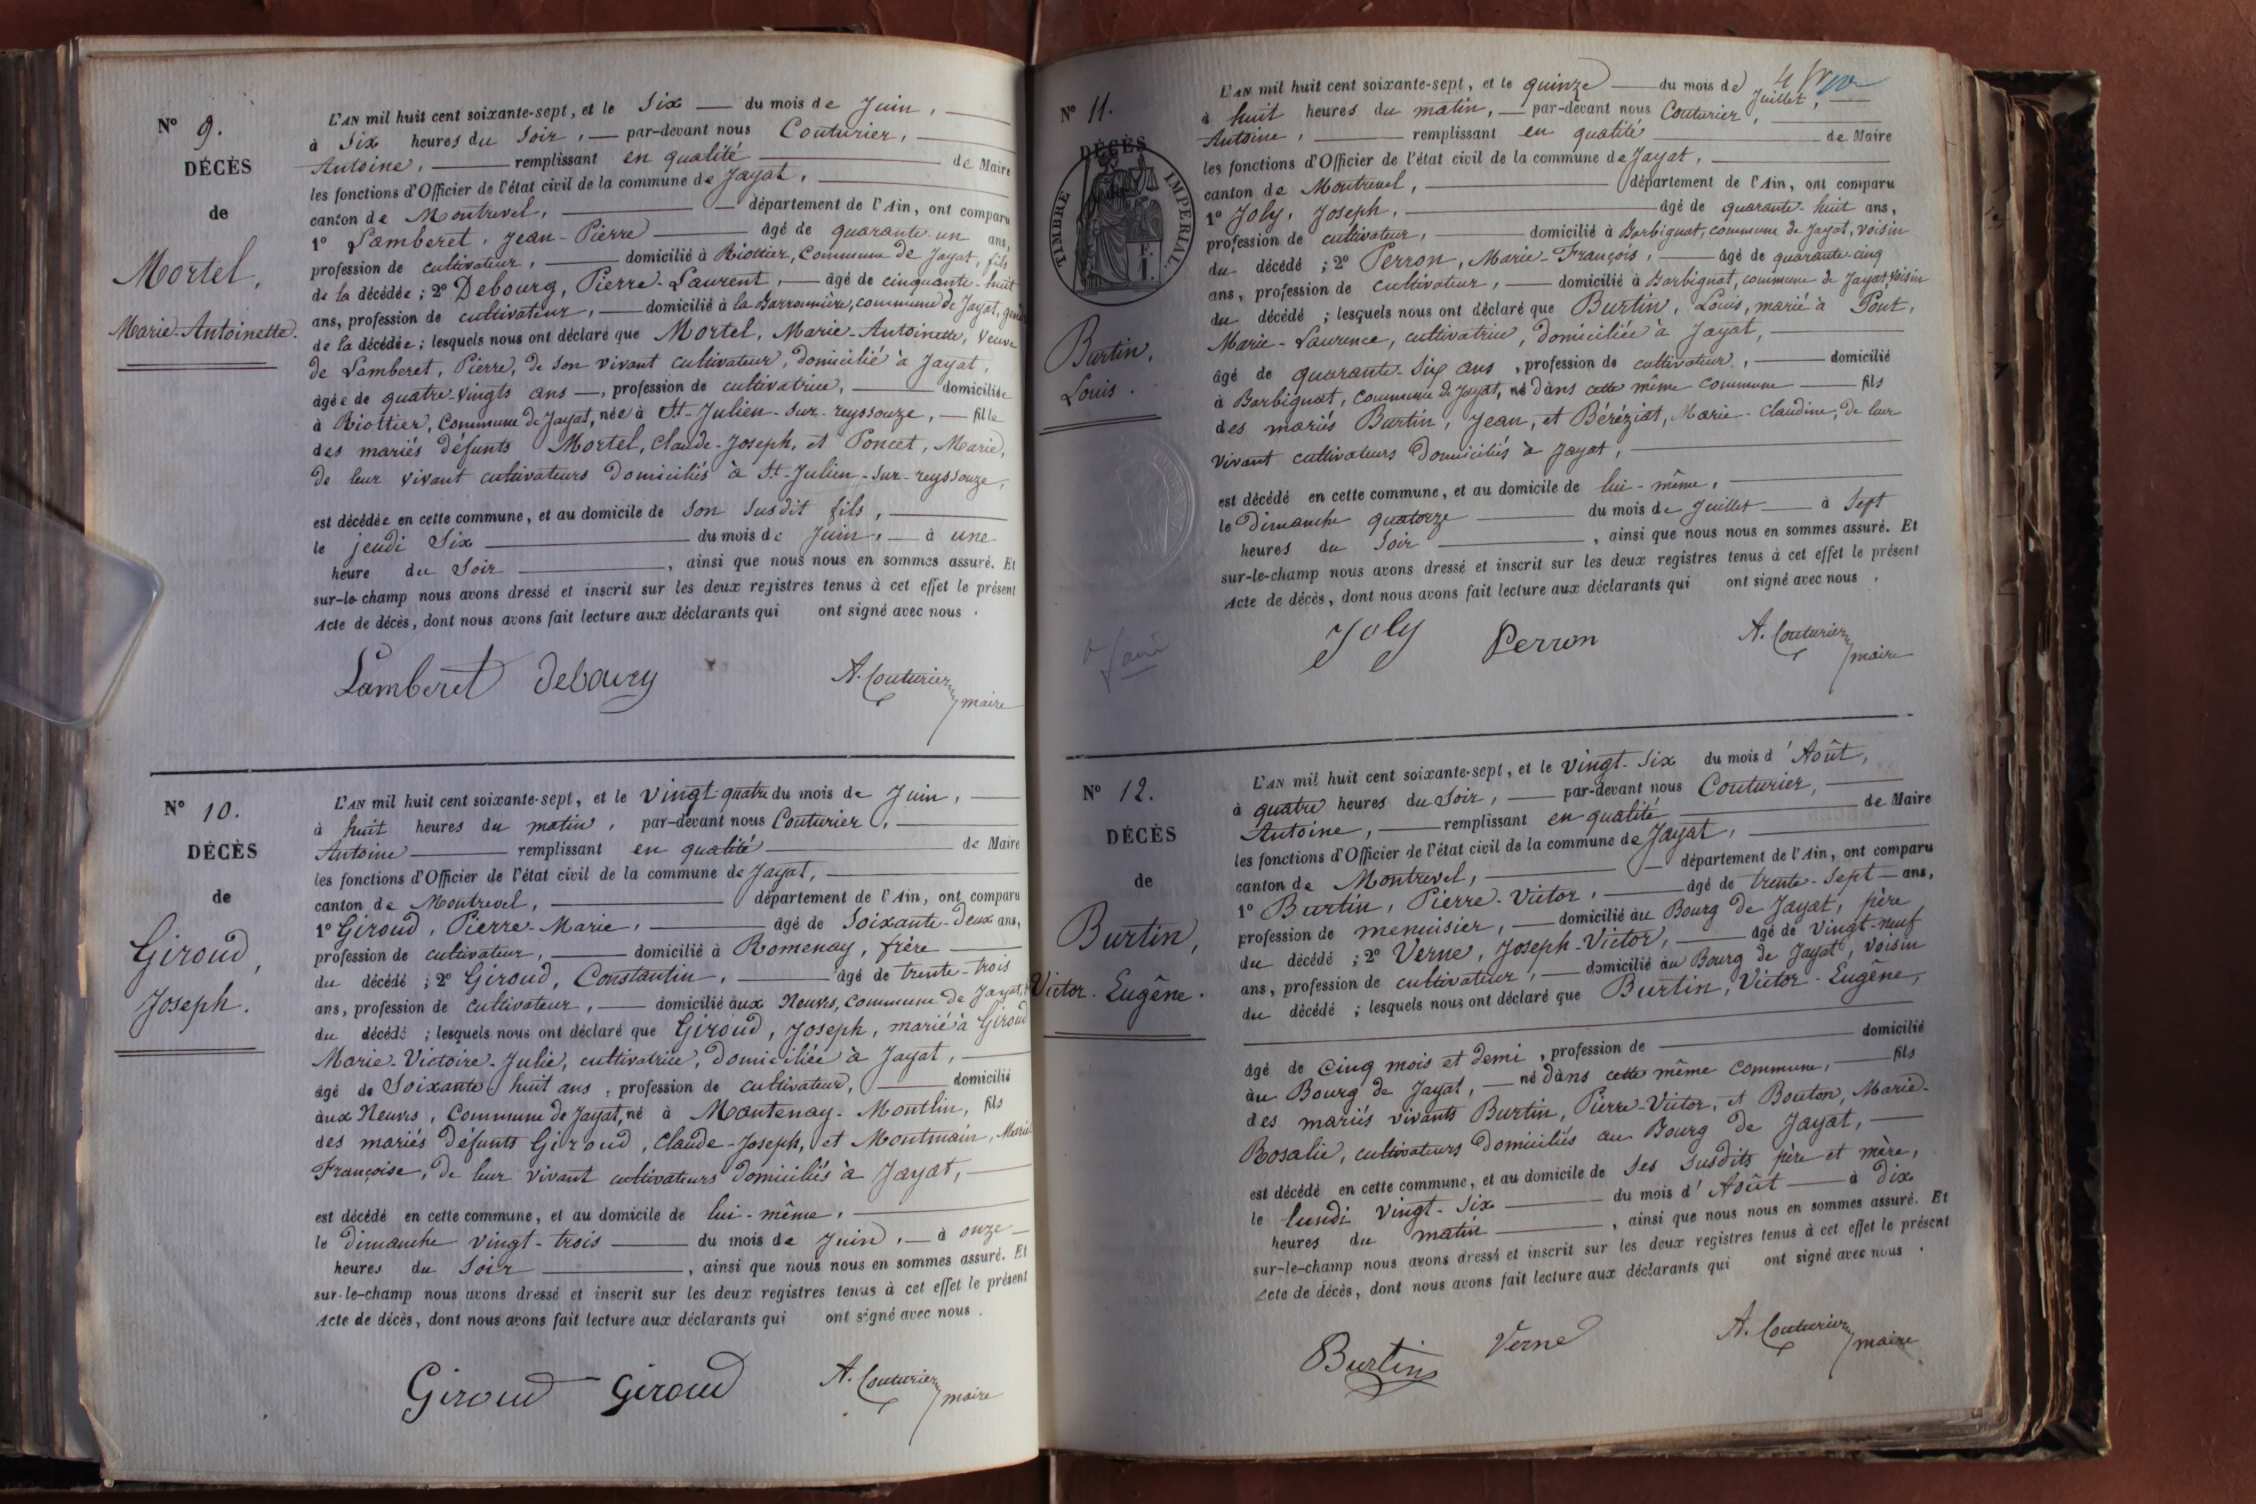 N° 9.
DÉCÈS
de
Mortel,
Marie-Antoinette.
L'AN mil huit cent soixante-sept, et le Six du mois de Juin,
à Six heures du Soir, par-devant nous Couturier,
Antoine, remplissant en qualité de Maire
les fonctions d'Officier de l'état civil de la commune de Jayat,
canton de Montrevel, département de l'Ain, ont comparu
1° Lamberet, Jean-Pierre âgé de quarante-un ans,
profession de cultivateur, domicilié à Riottier, Commune de Jayat, fils
de la décédée ; 2° Debourg, Pierre-Laurent, âgé de cinquante-huit
ans, profession de cultivateur, domicilié à la Garronnière, commune de Jayat,
de la décédée ; lesquels nous ont déclaré que Mortel, Marie-Antoinette, Veuve
de Lamberet, Pierre, de son vivant cultivateur, domicilié à Jayat,
âgée de quatre-vingts ans, profession de cultivatrice, domiciliée
à Riottier, Commune de Jayat, née à St-Julien-sur-reyssouze, fille
des mariés défunts Mortel, Claude-Joseph, et Poncet, Marie,
de leur vivant cultivateurs domiciliés à St-Julien-sur-reyssouze,
est décédée en cette commune, et au domicile de son susdit fils,
le jeudi Six du mois de Juin, à une
heure du Soir, ainsi que nous nous en sommes assuré. Et
sur-le-champ nous avons dressé et inscrit sur les deux registres tenus à cet effet le présent
Acte de décès, dont nous avons fait lecture aux déclarants qui ont signé avec nous.
Lamberet Debourg A. Couturier
maire
N° 10.
DÉCÈS
de
Giroud,
Joseph.
L'AN mil huit cent soixante-sept, et le vingt-quatre du mois de Juin,
à huit heures du matin, par-devant nous Couturier,
Antoine remplissant en qualité de Maire
les fonctions d'Officier de l'état civil de la commune de Jayat,
canton de Montrevel, département de l'Ain, ont comparu
1° Giroud, Pierre-Marie, âgé de Soixante-deux ans,
profession de cultivateur, domicilié à Romenay, frère
du décédé ; 2° Giroud, Constantin, âgé de trente-trois
ans, profession de cultivateur, domicilié aux Neuvrs, commune de Jayat,
du décédé ; lesquels nous ont déclaré que Giroud, Joseph, marié à Giroud
Marie-Victoire-Julie, cultivatrice, domiciliée à Jayat,
âgé de Soixante huit ans, profession de cultivateur, domicilié
aux Neuvrs, Commune de Jayat, né à Mantenay-Montlin, fils
des mariés défunts Giroud, Claude-Joseph, et Montmain, Marie
Françoise, de leur vivant cultivateurs domiciliés à Jayat,
est décédé en cette commune, et au domicile de lui-même,
le dimanche vingt-trois du mois de Juin, à onze
heures du Soir, ainsi que nous nous en sommes assuré. Et
sur-le-champ nous avons dressé et inscrit sur les deux registres tenus à cet effet le présent
Acte de décès, dont nous avons fait lecture aux déclarants qui ont signé avec nous.
Giroud Giroud A. Couturier
maire
N° 11.
DÉCÈS
TIMBRE IMPERIAL
Burtin,
Louis.
L'AN mil huit cent soixante-sept, et le quinze du mois de Juillet,
à huit heures du matin, par-devant nous Couturier,
Antoine, remplissant en qualité de Maire
les fonctions d'Officier de l'état civil de la commune de Jayat,
canton de Montrevel, département de l'Ain, ont comparu
1° Joly, Joseph, âgé de quarante-huit ans,
profession de cultivateur, domicilié à Barbignat, commune de Jayat, voisin
du décédé ; 2° Perron, Marie-François, âgé de quarante-cinq
ans, profession de cultivateur, domicilié à Barbignat, commune de Jayat, voisin
du décédé ; lesquels nous ont déclaré que Burtin, Louis, marié à Pont,
Marie-Laurence, cultivatrice, domiciliée à Jayat,
âgé de quarante-six ans, profession de cultivateur, domicilié
à Barbignat, Commune de Jayat, né dans cette même commune fils
des mariés Burtin, Jean, et Béréziat, Marie-Claudine, de leur
vivant cultivateurs domiciliés à Jayat,
est décédé en cette commune, et au domicile de lui-même,
le dimanche quatorze du mois de Juillet à Sept
heures du Soir, ainsi que nous nous en sommes assuré. Et
sur-le-champ nous avons dressé et inscrit sur les deux registres tenus à cet effet le présent
Acte de décès, dont nous avons fait lecture aux déclarants qui ont signé avec nous.
Joly Perron A. Couturier
maire
N° 12.
DÉCÈS
de
Burtin,
Victor-Eugêne.
L'AN mil huit cent soixante-sept, et le vingt-six du mois d'Août,
à quatre heures du Soir, par-devant nous Couturier,
Antoine, remplissant en qualité de Maire
les fonctions d'Officier de l'état civil de la commune de Jayat,
canton de Montrevel, département de l'Ain, ont comparu
1° Burtin, Pierre-Victor, âgé de trente-sept ans,
profession de menuisier, domicilié au Bourg de Jayat, père
du décédé ; 2° Verne, Joseph-Victor, âgé de vingt-neuf
ans, profession de cultivateur, domicilié au Bourg de Jayat, voisin
du décédé ; lesquels nous ont déclaré que Burtin, Victor-Eugêne,
âgé de cinq mois et demi, profession de domicilié
au Bourg de Jayat, né dans cette même commune, fils
des mariés vivants Burtin, Pierre-Victor, et Bouton, Marie-
Rosalie, cultivateurs domiciliés au Bourg de Jayat,
est décédé en cette commune, et au domicile de ses susdits père et mère,
le lundi vingt-six du mois d'Août à dix
heures du matin, ainsi que nous nous en sommes assuré. Et
sur-le-champ nous avons dressé et inscrit sur les deux registres tenus à cet effet le présent
Acte de décès, dont nous avons fait lecture aux déclarants qui ont signé avec nous.
Burtin Verne A. Couturier
maire